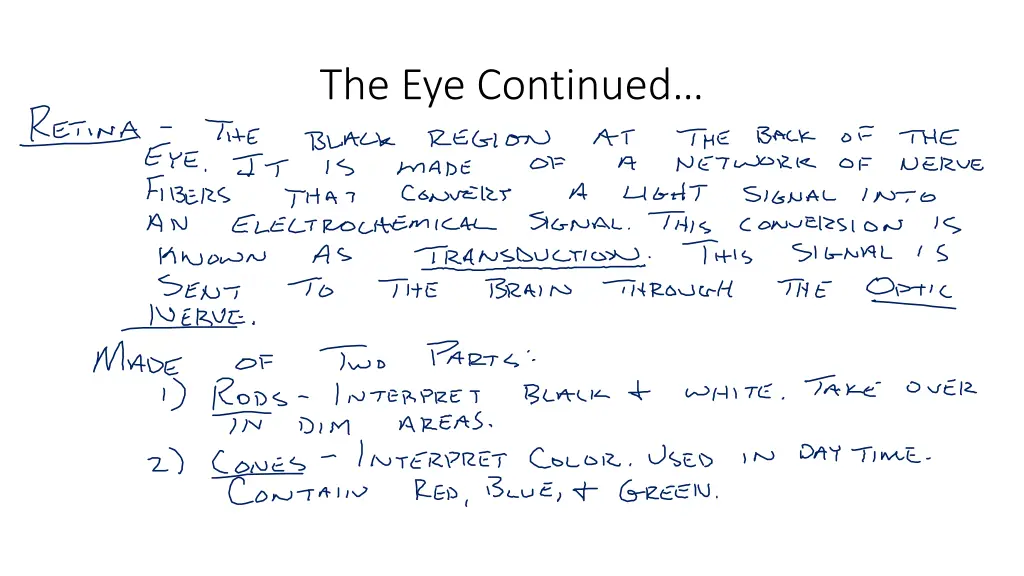 The Eye Continued...
RETINA - THE BLACK REGION AT THE BACK OF THE
EYE. IT IS MADE OF A NETWORK OF NERVE
FIBERS THAT CONVERTS A LIGHT SIGNAL INTO
AN ELECTROCHEMICAL SIGNAL. THIS CONVERSION IS
KNOWN AS TRANSDUCTION. THIS SIGNAL IS
SENT TO THE BRAIN THROUGH THE OPTIC
NERVE.
MADE OF TWO PARTS:
1) RODS - INTERPRET BLACK & WHITE. TAKE OVER
IN DIM AREAS.
2) CONES - INTERPRET COLOR. USED IN DAY TIME.
CONTAIN RED, BLUE, & GREEN.